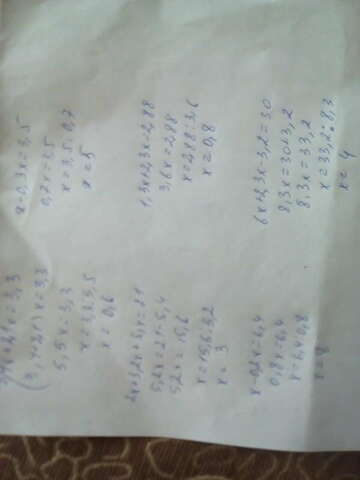 (3,4+2,1)x=3,3
5,5x=3,3
x=3,3:5,5
x=0,6
5,2x=21-5,4
5,2x=15,6
x=15,6:5,2
x=3
x-0,2x=6,4
0,8x=6,4
x=6,4:0,8
x=8
x-0,3x=3,5
0,7x=3,5
x=3,5:0,7
x=5
1,3x+2,3x=2,88
3,6x=2,88
x=2,88:3,6
x=0,8
6x+2,3x-3,2=30
8,3x=30+3,2
8,3x=33,2
x=33,2:8,3
x=4